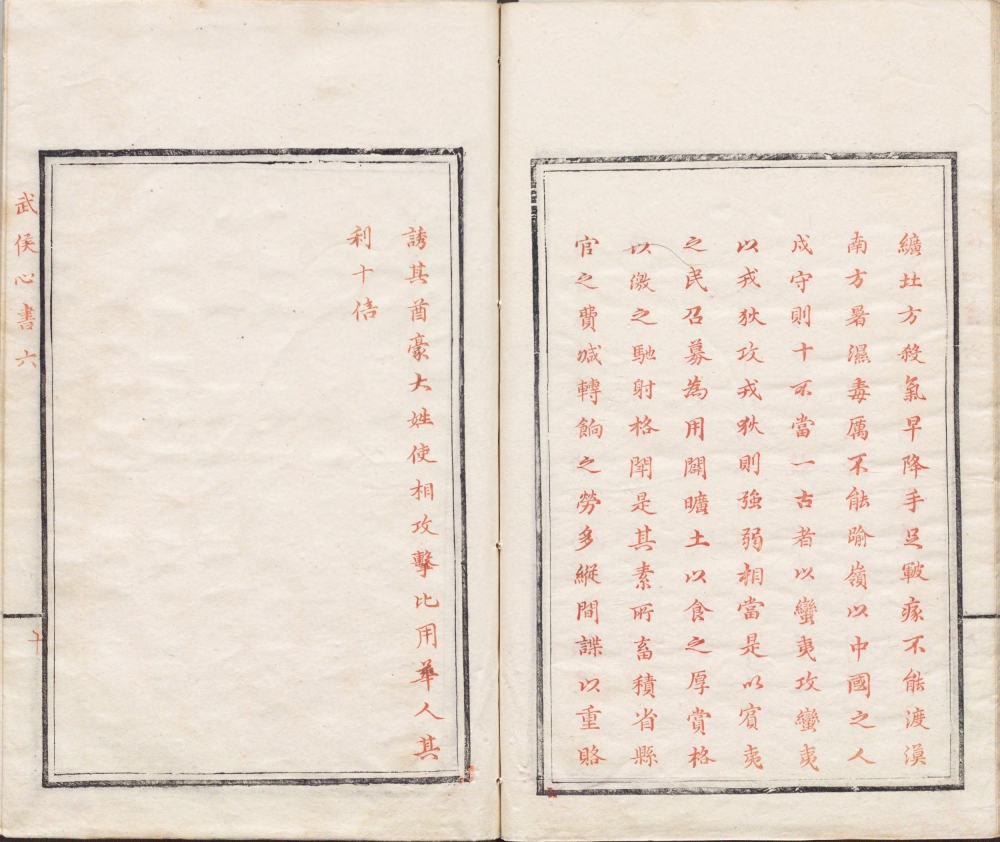 纊北方殺氣早降手足皸瘃不能渡漠
南方暑濕毒厲不能踰嶺以中國之人
戍守則十不當一古者以蠻夷攻蠻夷
以戎狄攻戎狄則強弱相當是以賓夷
之民召募為用闢曠土以食之厚賞格
以激之馳射格鬭是其素所畜積省縣
官之費減轉餉之勞多縱間諜以重賂
誘其酋豪大姓使相攻擊比用華人其
利十倍
武侯心書六